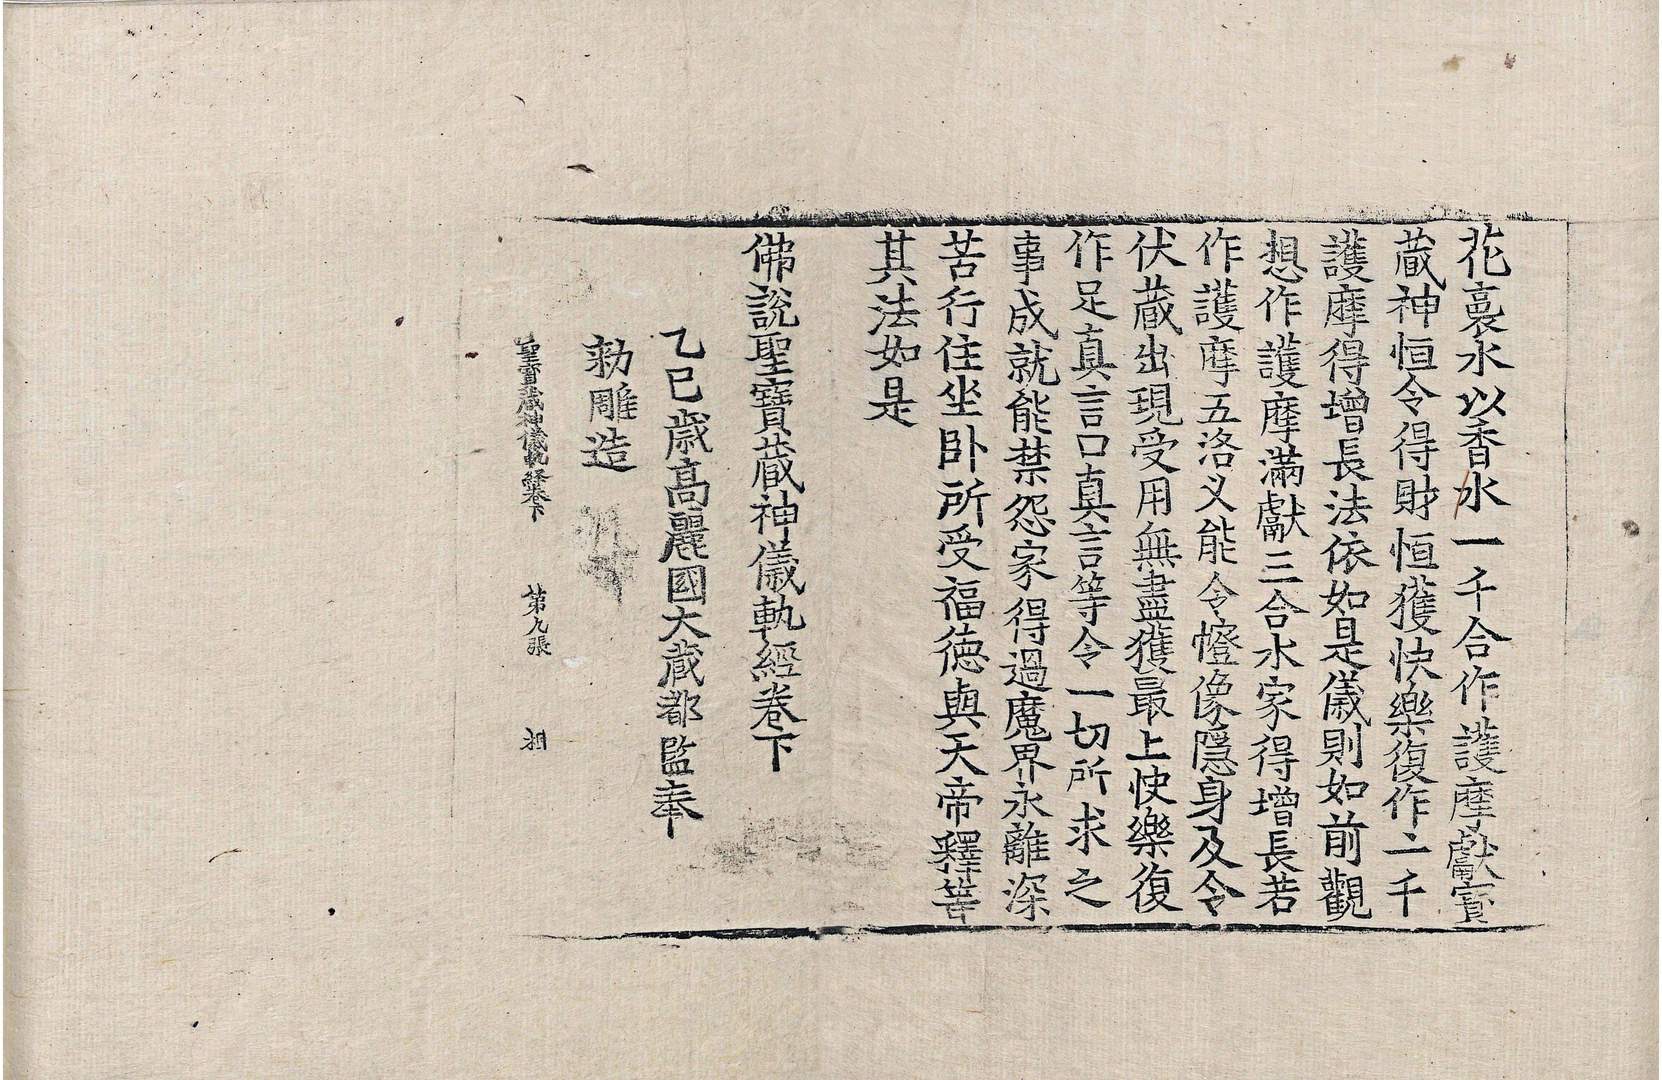 花裹水以香水一千合作護摩獻寳
蔵神恒令得財恒獲快樂復作二千
護摩得增長法依如是儀則如前觀
想作護摩滿獻三合水家得增長若
作護摩五洛义能令幢像隱身及令
伏蔵出現受用無盡獲最上快樂復
作足真言口真言等令一切所求之
事成就能禁怨家得過魔界永離深
苦行住坐卧所受福德與天帝釋等
其法如是
佛說聖寶蔵神儀軌經卷下
乙巳歲高麗國大蔵都監奉
勑雕造
聖寶蔵神儀軌經卷下 第九張 相